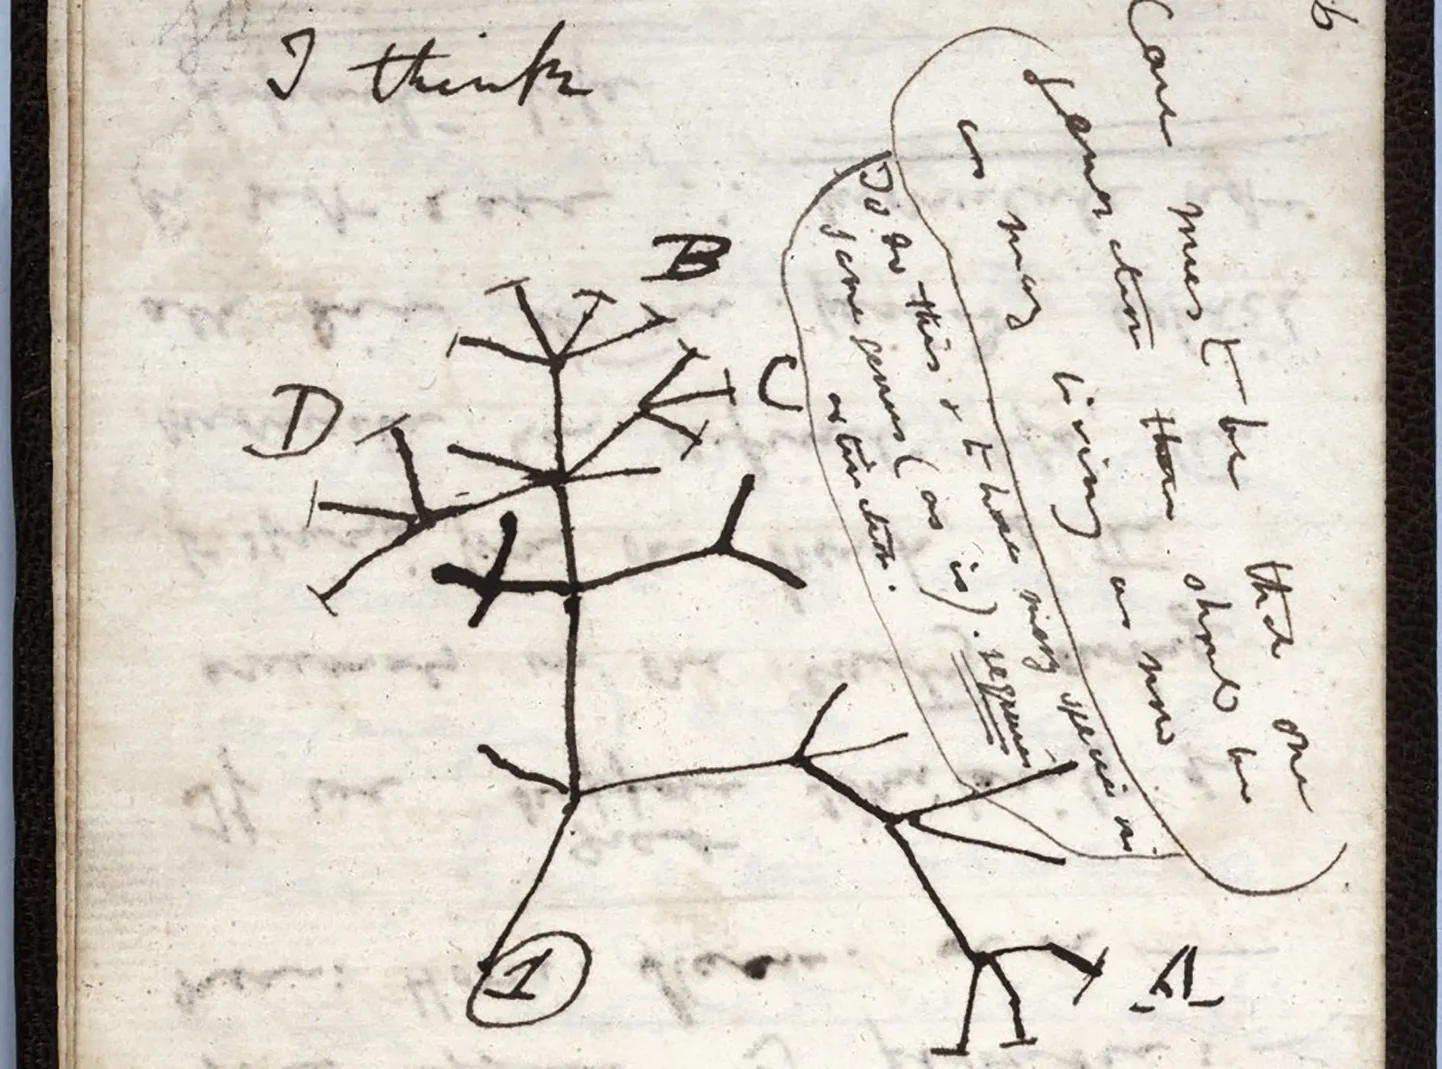 I think
6
Case must be that one
generation then should be
as many living as now
To do this & to have many species in
same genus (as is). requires
extinction.
B
C
D
A
1